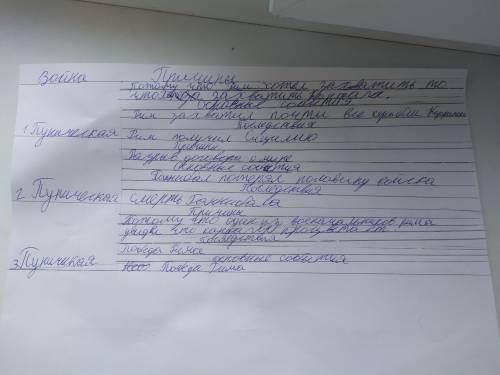 Война Причины
Потому что Рим хотел захватить то
что захватить
Основные события
Рим захватил почти все корабли
Последствия
1 Пуническая Рим получил Сицилию
Причины
Разрыв договора о мире
Основные события
Ганнибал потерял половину войска
Последствия
2 Пуническая Смерть Ганнибала
Причины
Потому что один из Рима
увидел что процветает
Последствия
Победа Рима
3 Пуническая основные события
Победа Рима